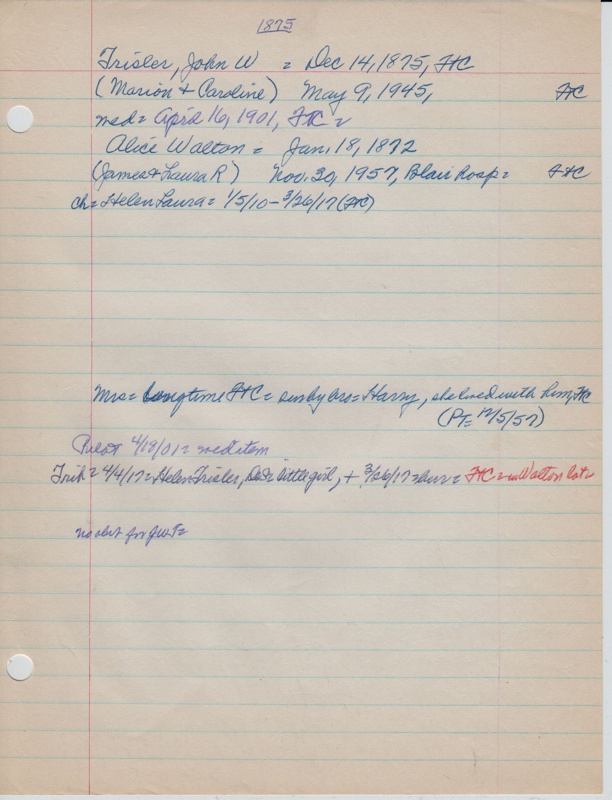 1875
Trisler, John W = Dec 14, 1875, FtC
(Marion + Caroline) May 9, 1945, FtC
med = April 16, 1901, FtC =
Alice Walton = Jan. 18, 1872
(James + Laura R) Nov. 30, 1957, Blair Hosp = FtC
ch = Helen Laura = 1/5/10 - 3/26/17 (FtC)
Mrs = longtime FtC = surby bro = Harry, she lived with him, FtC
(PT = 12/5/57)
Pilot 4/18/01 = med item
Trib = 4/4/17 = Helen Trisler, little girl, + 3/26/17 = bur = FtC = in Walton lot =
no obit for JWT =